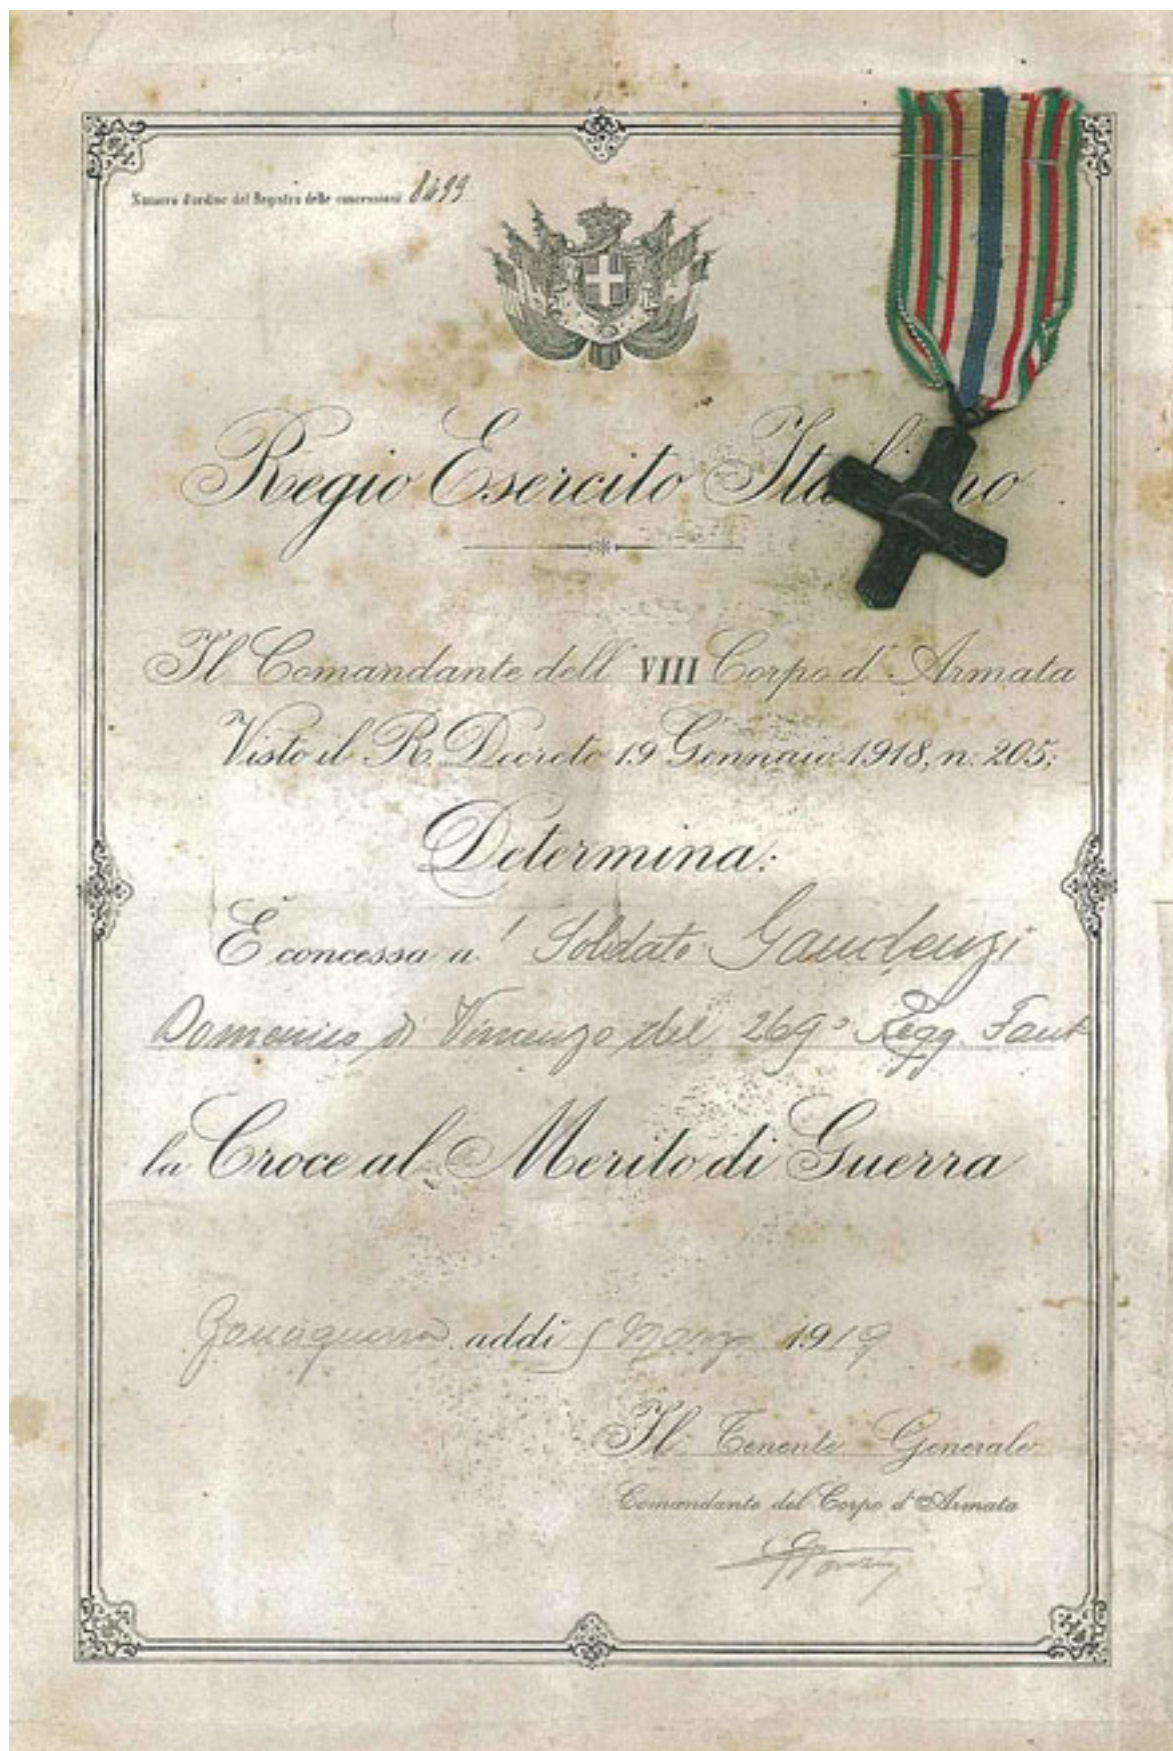 Numero d'ordine del Registro delle concessioni 8499
Regio Esercito Italiano
Il Comandante dell' VIII Corpo d'Armata
Visto il R. Decreto 19 Gennaio 1918, n. 205;
Determina:
È concessa al Soldato Gaudenzi
Domenico di Vincenzo del 269º Regg. Fant
la Croce al Merito di Guerra
addì 5 Marzo 1919
Il Tenente Generale
Comandante del Corpo d'Armata